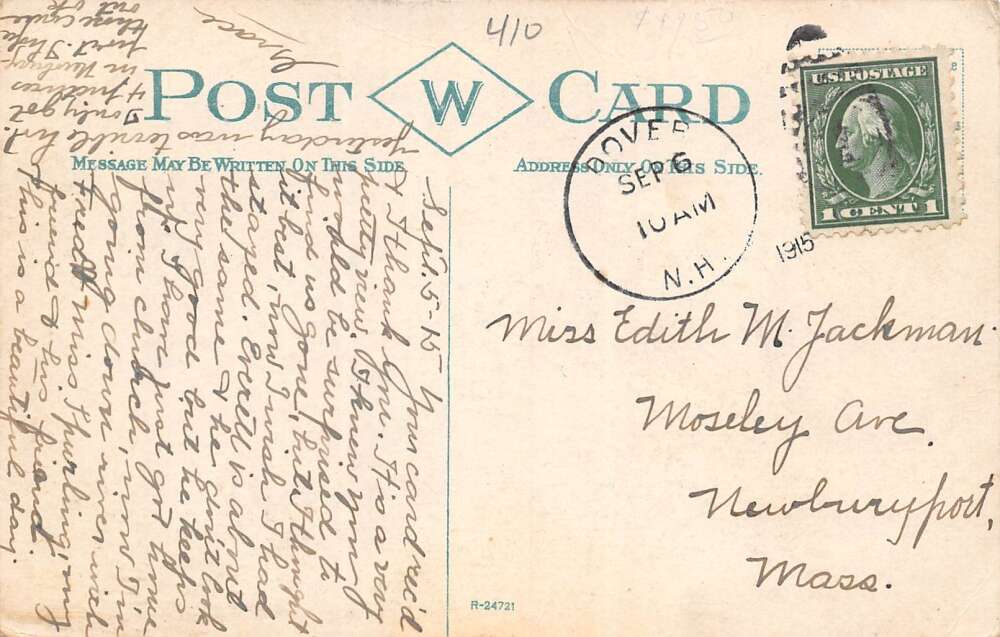 410
POST W CARD
MESSAGE MAY BE WRITTEN ON THIS SIDE
ADDRESS ONLY ON THIS SIDE.
U.S. POSTAGE
1 CENT 1
DOVER
SEP 6
10 AM
N.H.
1915
Miss Edith M. Jackman
Moseley Ave,
Newburyport,
Mass.
R-24721
Sept. 5-15 Your card rec'd
& I thank you. It is a very
pretty view. I knew you
would be surprised to
find us gone, but I thought
it best, now I wish I had
stayed. Everett is about
the same & he don't look
very good but he keeps
up. I have just got home
from church, now I'm
going down river with
Fred & Miss Thurling, my
friend & his friend,
This is a beautiful day.
Yesterday was terrible hot.
I only got
4 pictures
in Newbury-
port. I take
those cycle
out of
Grace